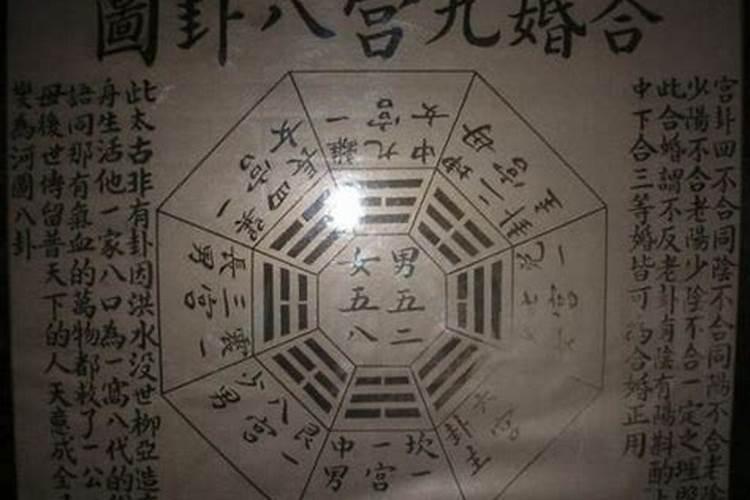 合婚九宫八卦圖
宫卦四不合同陰不合同陽不合老陰
少陽不合老陽少陰不合一定之理
此合婚謂不反老卦有陰有陽斟酌
中下合三等婚皆可為合婚正用
中女 九宫 離一
二宫 坤
一 兑
六宫
坎一 一宫 中男
艮一 八宫 少男
震一 三宫 長男
一 四宫 長女
男五二
女五八
此太古非有卦因洪水没世柳亞造
舟生活他一家八口為一窩八代的
語同那有氣血的萬物都救了一公
母後世傳留普天下的人天意成全
變為河圖八卦